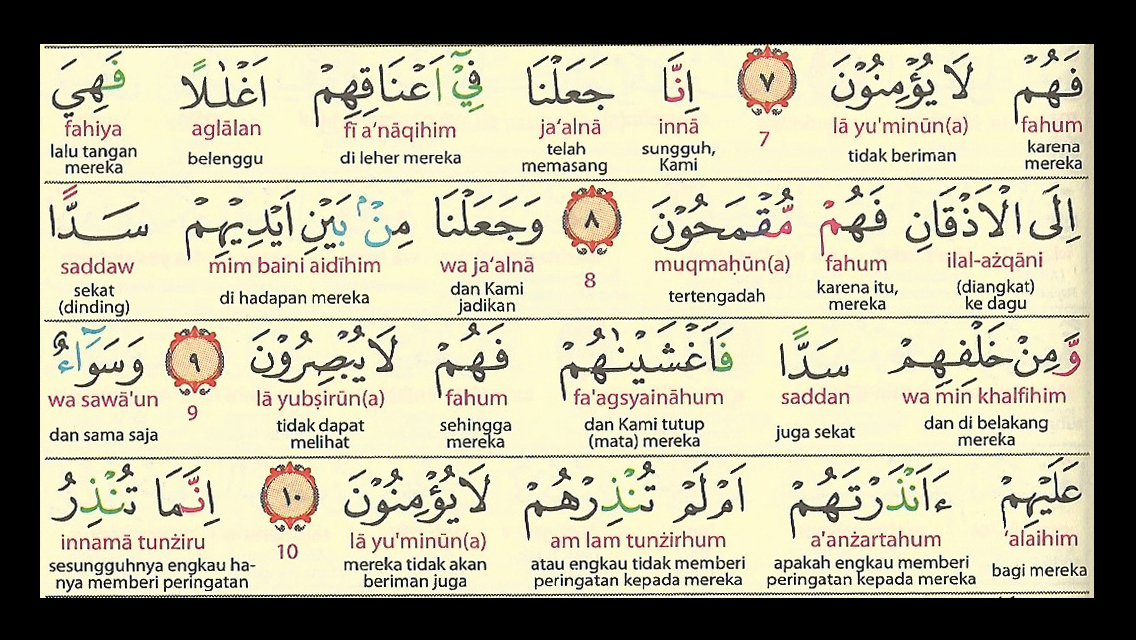 فَهُمْ لَا يُؤْمِنُوْنَ ٧ اِنَّا جَعَلْنَا فِيْٓ اَعْنَاقِهِمْ اَغْلٰلًا فَهِيَ
fahum lā yu'minūn(a) 7 innā ja‘alnā fī a‘nāqihim aglālan fahiya
karena mereka tidak beriman sungguh, Kami telah memasang di leher mereka belenggu lalu tangan mereka
اِلَى الْاَذْقَانِ فَهُمْ مُّقْمَحُوْنَ ٨ وَجَعَلْنَا مِنْۢ بَيْنِ اَيْدِيْهِمْ سَدًّا
ilal-ażqāni fahum muqmaḥūn(a) 8 wa ja‘alnā mim baini aidīhim saddaw
(diangkat) ke dagu karena itu, mereka tertengadah dan Kami jadikan di hadapan mereka sekat (dinding)
وَّمِنْ خَلْفِهِمْ سَدًّا فَاَغْشَيْنٰهُمْ فَهُمْ لَا يُبْصِرُوْنَ ٩ وَسَوَاۤءٌ
wa min khalfihim saddan fa'agsyaināhum fahum lā yubṣirūn(a) 9 wa sawā'un
dan di belakang mereka juga sekat dan Kami tutup (mata) mereka sehingga mereka tidak dapat melihat dan sama saja
عَلَيْهِمْ ءَاَنْذَرْتَهُمْ اَمْ لَمْ تُنْذِرْهُمْ لَا يُؤْمِنُوْنَ ١٠ اِنَّمَا تُنْذِرُ
‘alaihim a'anżartahum am lam tunżirhum lā yu'minūn(a) 10 innamā tunżiru
bagi mereka apakah engkau memberi peringatan kepada mereka atau engkau tidak memberi peringatan kepada mereka mereka tidak akan beriman juga sesungguhnya engkau ha-nya memberi peringatan